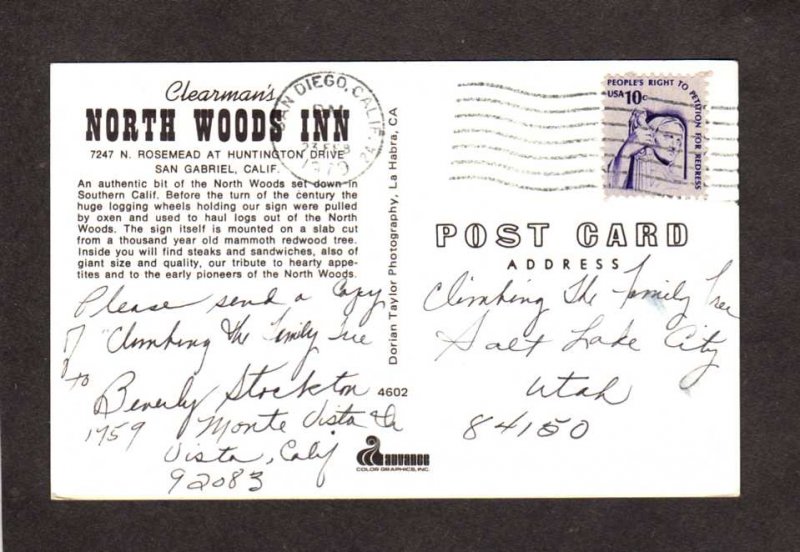 Clearman's
NORTH WOODS INN
7247 N. ROSEMEAD AT HUNTINGTON DRIVE
SAN GABRIEL, CALIF.
An authentic bit of the North Woods set down in
Southern Calif. Before the turn of the century the
huge logging wheels holding our sign were pulled
by oxen and used to haul logs out of the North
Woods. The sign itself is mounted on a slab cut
from a thousand year old mammoth redwood tree.
Inside you will find steaks and sandwiches, also of
giant size and quality, our tribute to hearty appe-
tites and to the early pioneers of the North Woods.
Please send a Copy
of "Climbing the Family Tree
to
Beverly Stockton
1759 Monte Vista Dr
Vista, Calif
92083
4602
Dorian Taylor Photography, La Habra, CA
advance
COLOR GRAPHICS, INC.
SAN DIEGO, CALIF.
PM
23 FEB
1979
PEOPLE'S RIGHT TO PETITION FOR REDRESS
USA 10c
POST CARD
ADDRESS
Climbing The Family Tree
Salt Lake City
Utah
84150